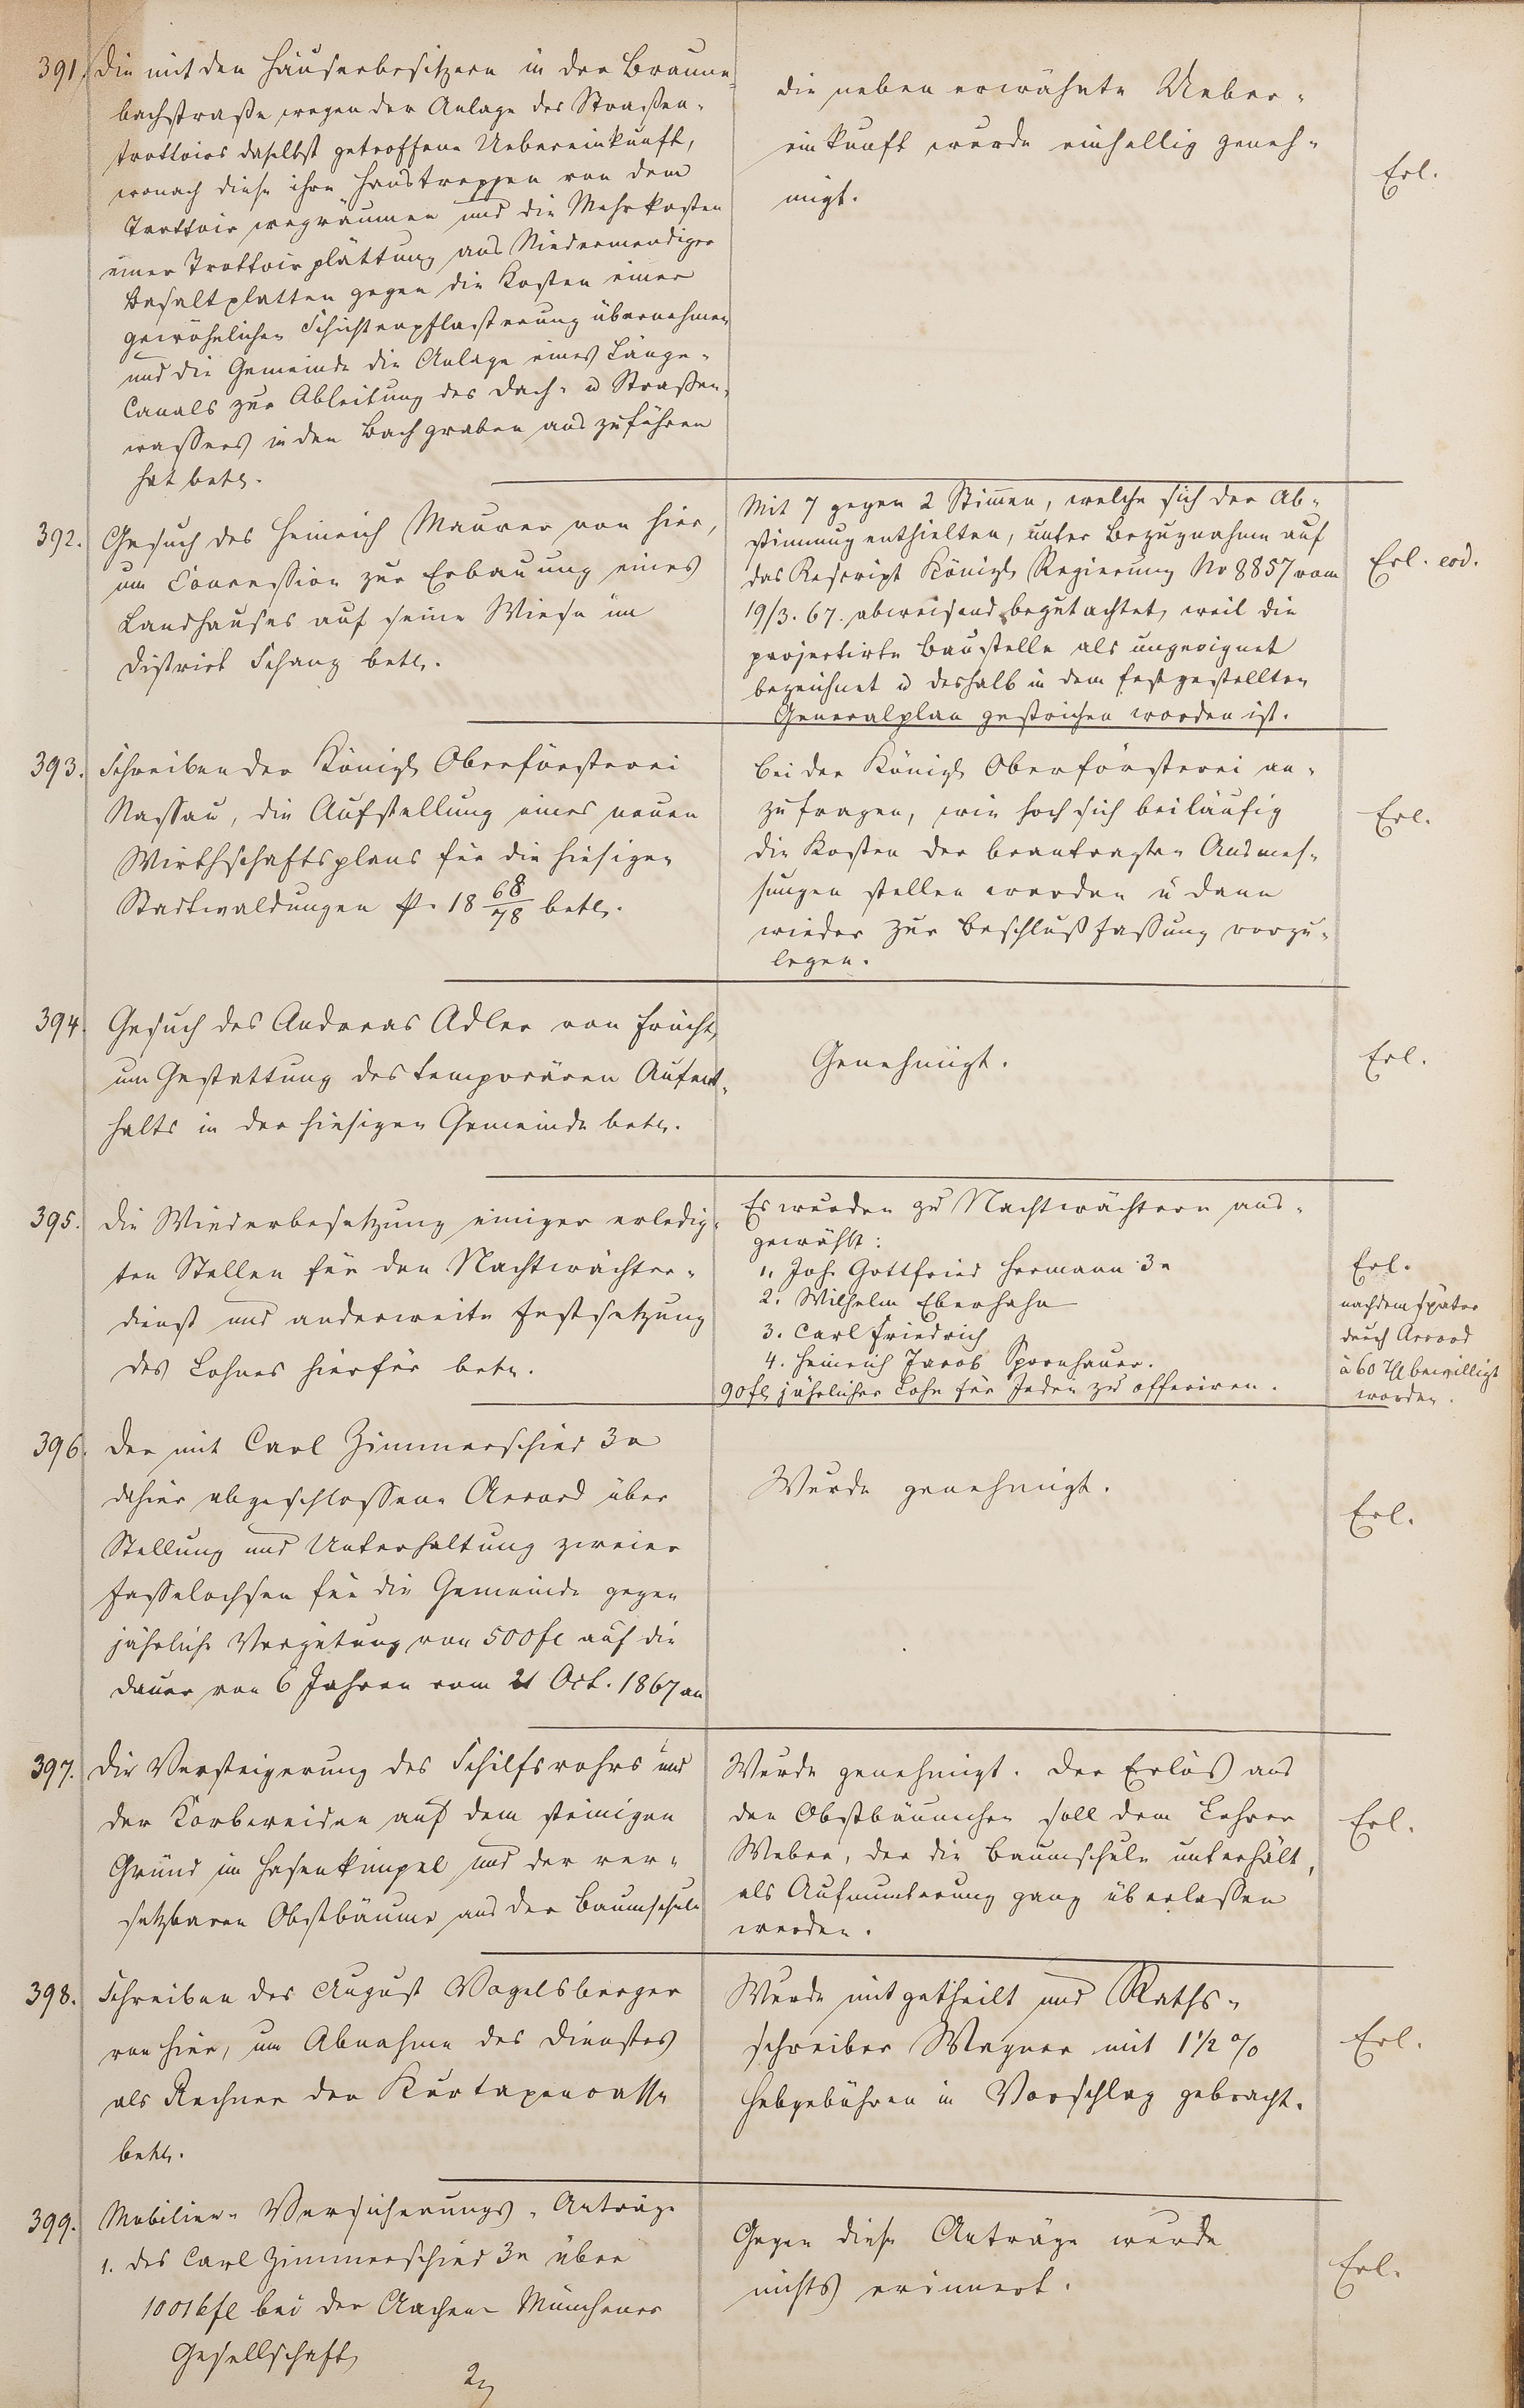 391. Die mit den Häuserbesitzern in der Braune-
bachstraße wegen der Anlage des Straßen-
trottoirs daselbst getroffene Uebereinkunft,
wonach diese ihre Haustreppen von dem
Trottoir wegräumen und die Mehrkosten
einer Trottoirplättung aus Niedermendiger
Basaltplatten gegen die Kosten einer
gewöhnlichen Schichtenpflasterung übernehmen
und die Gemeinde die Anlage eines Länge-
Canals zur Ableitung des Dach- u Straßen-
wassers in den Bachgraben auszuführen
hat betr.
die neben erwähnte Ueber-
einkunft wurde einhellig geneh-
migt.
Erl.
392. Gesuch des Heinrich Maurer von hier,
um Concession zur Erbauung eines
Landhauses auf seine Wiese im
District Schanz betr.
Mit 7 gegen 2 Stimmen, welche sich der Ab-
stimmung enthielten, unter Bezugnahme auf
das Rescript Königl. Regierung No 8857 vom
19/3. 67. abweisend begutachtet, weil die
projectirte Baustelle als ungeeignet
bezeichnet u deshalb in dem festgestellten
Generalplan gestrichen worden ist.
Erl. eod.
393. Schreiben der Königl. Oberförsterei
Nassau, die Aufstellung eines neuen
Wirthschaftsplans für die hiesigen
Stadtwaldungen p. 18 68/78 betr.
Bei der Königl. Oberförsterei an-
zufragen, wie hoch sich beiläufig
die Kosten der beantragten Ausmes-
sungen stellen werden u dann
wieder zur Beschlußfassung vorzu-
legen.
Erl.
394. Gesuch des Andreas Adler von Frücht,
um Gestattung des temporären Aufent-
halts in der hiesigen Gemeinde betr.
Genehmigt.
Erl.
395. Die Wiederbesetzung einiger erledig-
ten Stellen für den Nachtwächter-
dienst und anderweite Festsetzung
des Lohnes hierfür betr.
Es wurden zu Nachtwächtern aus-
gewählt:
1. Joh. Gottfried Hermann 3r
2. Wilhelm Eberhahn
3. Carl Friedrich
4. Heinrich Jacob Spornhauer.
90 fl jährlicher Lohn für Jeden zu offeriren.
Erl.
nachdem später
durch Accord
à 60 Th bewilligt
worden.
396. Der mit Carl Zimmerschied 3r
dahier abgeschlossene Accord über
Stellung und Unterhaltung zweier
Fasselochsen für die Gemeinde gegen
jährliche Vergütung von 500 fl auf die
Dauer von 6 Jahren vom 21 Oct. 1867 an
Wurde genehmigt.
Erl.
397. Die Versteigerung des Schilfsrohrs und
der Korbweiden auf dem steinigen
Grund im Hasenkümpel und der ver-
setzbaren Obstbäume aus der Baumschule
Wurde genehmigt. Der Erlös aus
den Obstbäumchen soll dem Lehrer
Weber, der die Baumschule unterhält,
als Aufmunterung ganz überlassen
werden.
Erl.
398. Schreiben des August Vogelsberger
von hier, um Abnahme des Dienstes
als Rechner der Kurtaxencasse
betr.
Wurde mitgetheilt und Raths-
schreiber Wagner mit 1 1/2 %
Hebgebühren in Vorschlag gebracht.
Erl.
399. Mobiliar-Versicherungs-Anträge
1. des Carl Zimmerschied 3r über
10016 fl bei der Aachen-Münchener
Gesellschaft,
2,
Gegen diese Anträge wurde
nichts erinnert.
Erl.